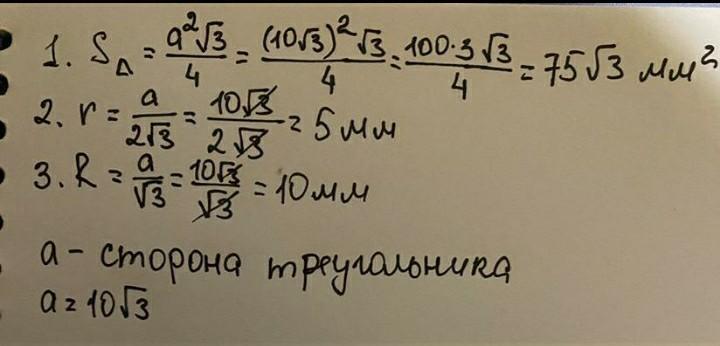 1. S△ = a²√3/4 = (10√3)²√3/4 = 100·3√3/4 = 75√3 мм²
2. r = a/2√3 = 10√3/2√3 = 5 мм
3. R = a/√3 = 10√3/√3 = 10 мм
a - сторона треугальника
a = 10√3